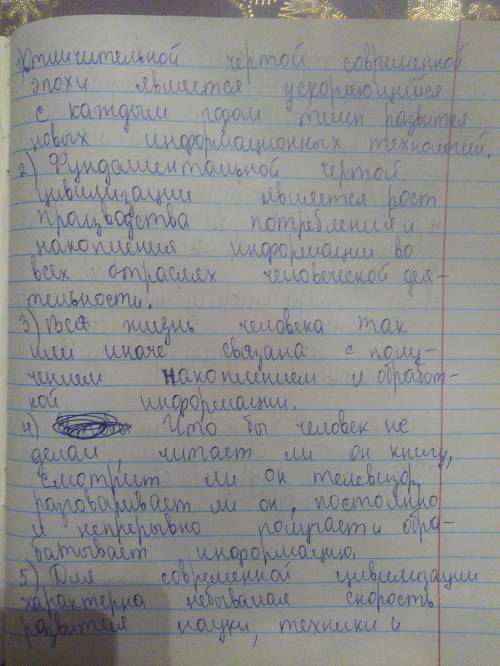 1) Отличительной чертой современной
эпохи является ускоряющийся
с каждым годом темп развития
новых информационных технологий.
2) Фундаментальной чертой
цивилизации является рост
производства потребления и
накопления информации во
всех отраслях человеческой дея-
тельности.
3) Вся жизнь человека так
или иначе связана с полу-
чением накоплением и обработ-
кой информации.
4) Что бы человек не
делал, читает ли он книгу,
смотрит ли он телевизор,
разговаривает ли он, постоянно
и непрерывно получает и обра-
батывает информацию.
5) Для современной цивилизации
характерна небывалая скорость
развития науки, техники и